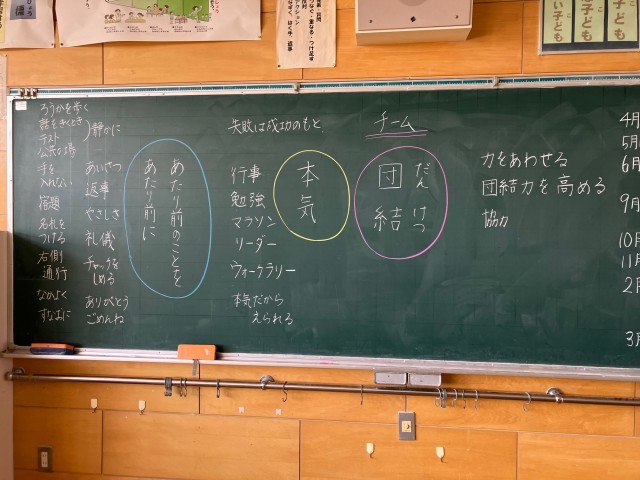 チーム
団結
だんけつ
力をあわせる
団結力を高める
協力
4月
5月
6月
9月
10月
11月
2月
3月
失敗は成功のもと
本気
行事
勉強
マラソン
リーダー
ウォークラリー
本気だから
えられる
あたり前のことを
あたり前に
ろうかを歩く
話をきくとき
テスト
公共の場
静かに
手を
入れない
宿題
名札を
つける
右側
通行
なかよく
すなおに
あいさつ
返事
やさしさ
礼儀
チャックを
しめる
ありがとう
ごめんね
つなぐ・重なる・つけ足す
はく手・返事
い子ども
子ども
子ども